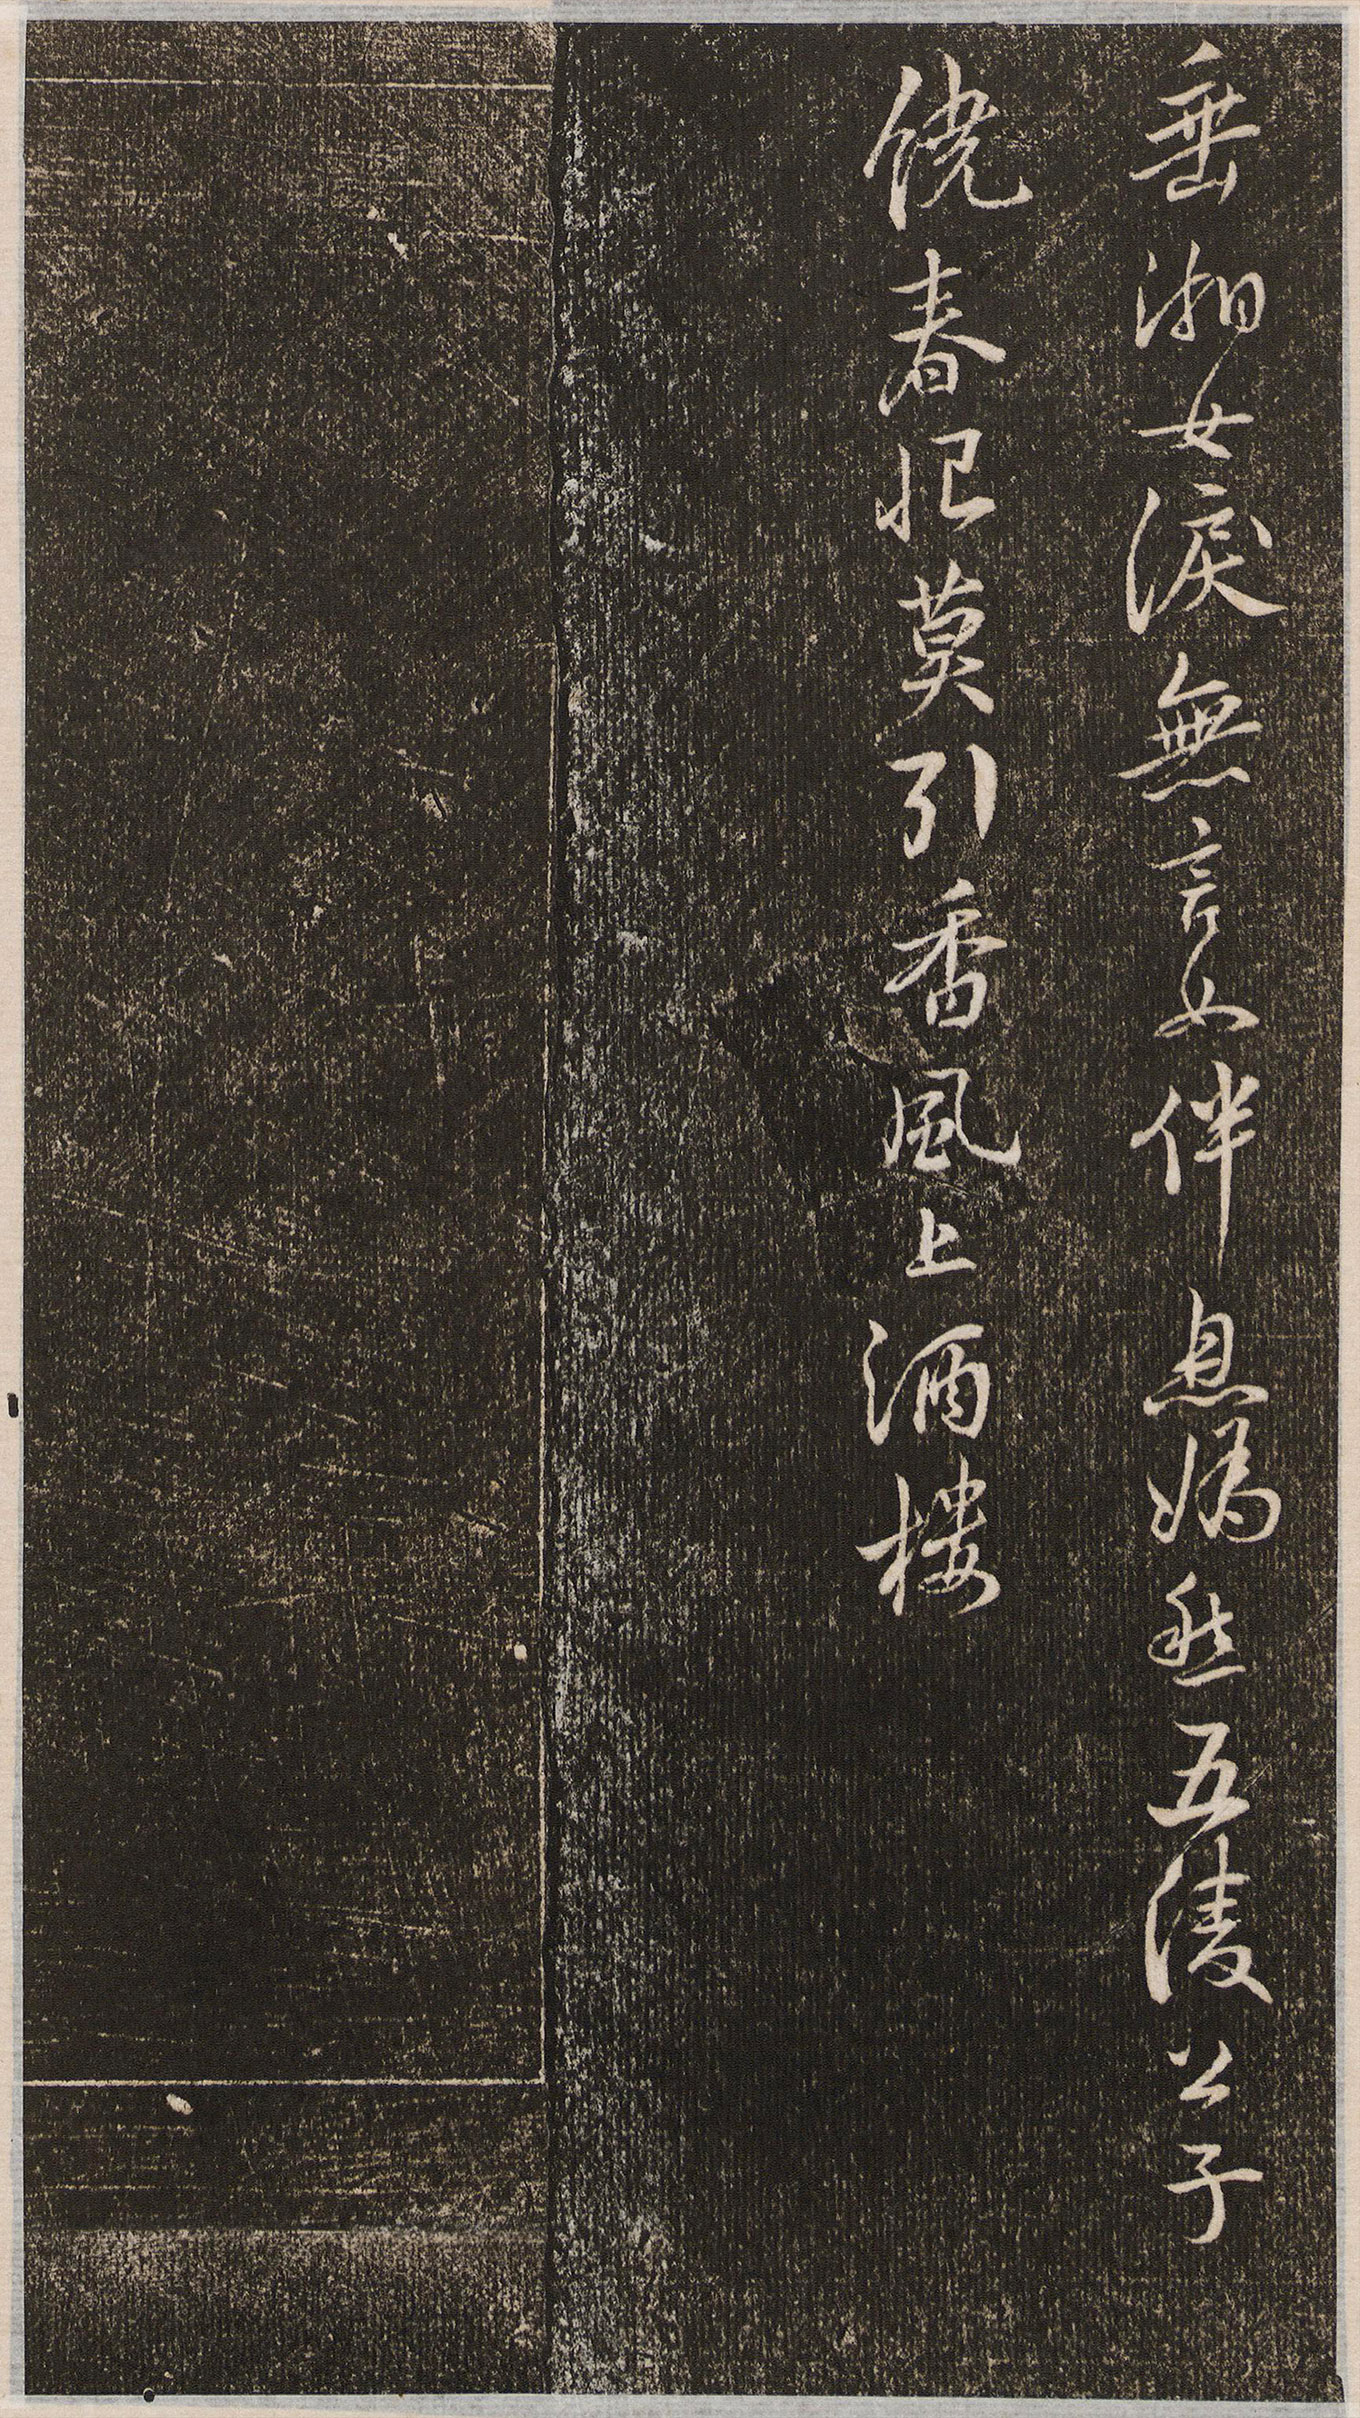 垂湘女淚無言如伴息媯愁五陵公子
饒春恨莫引香風上酒樓